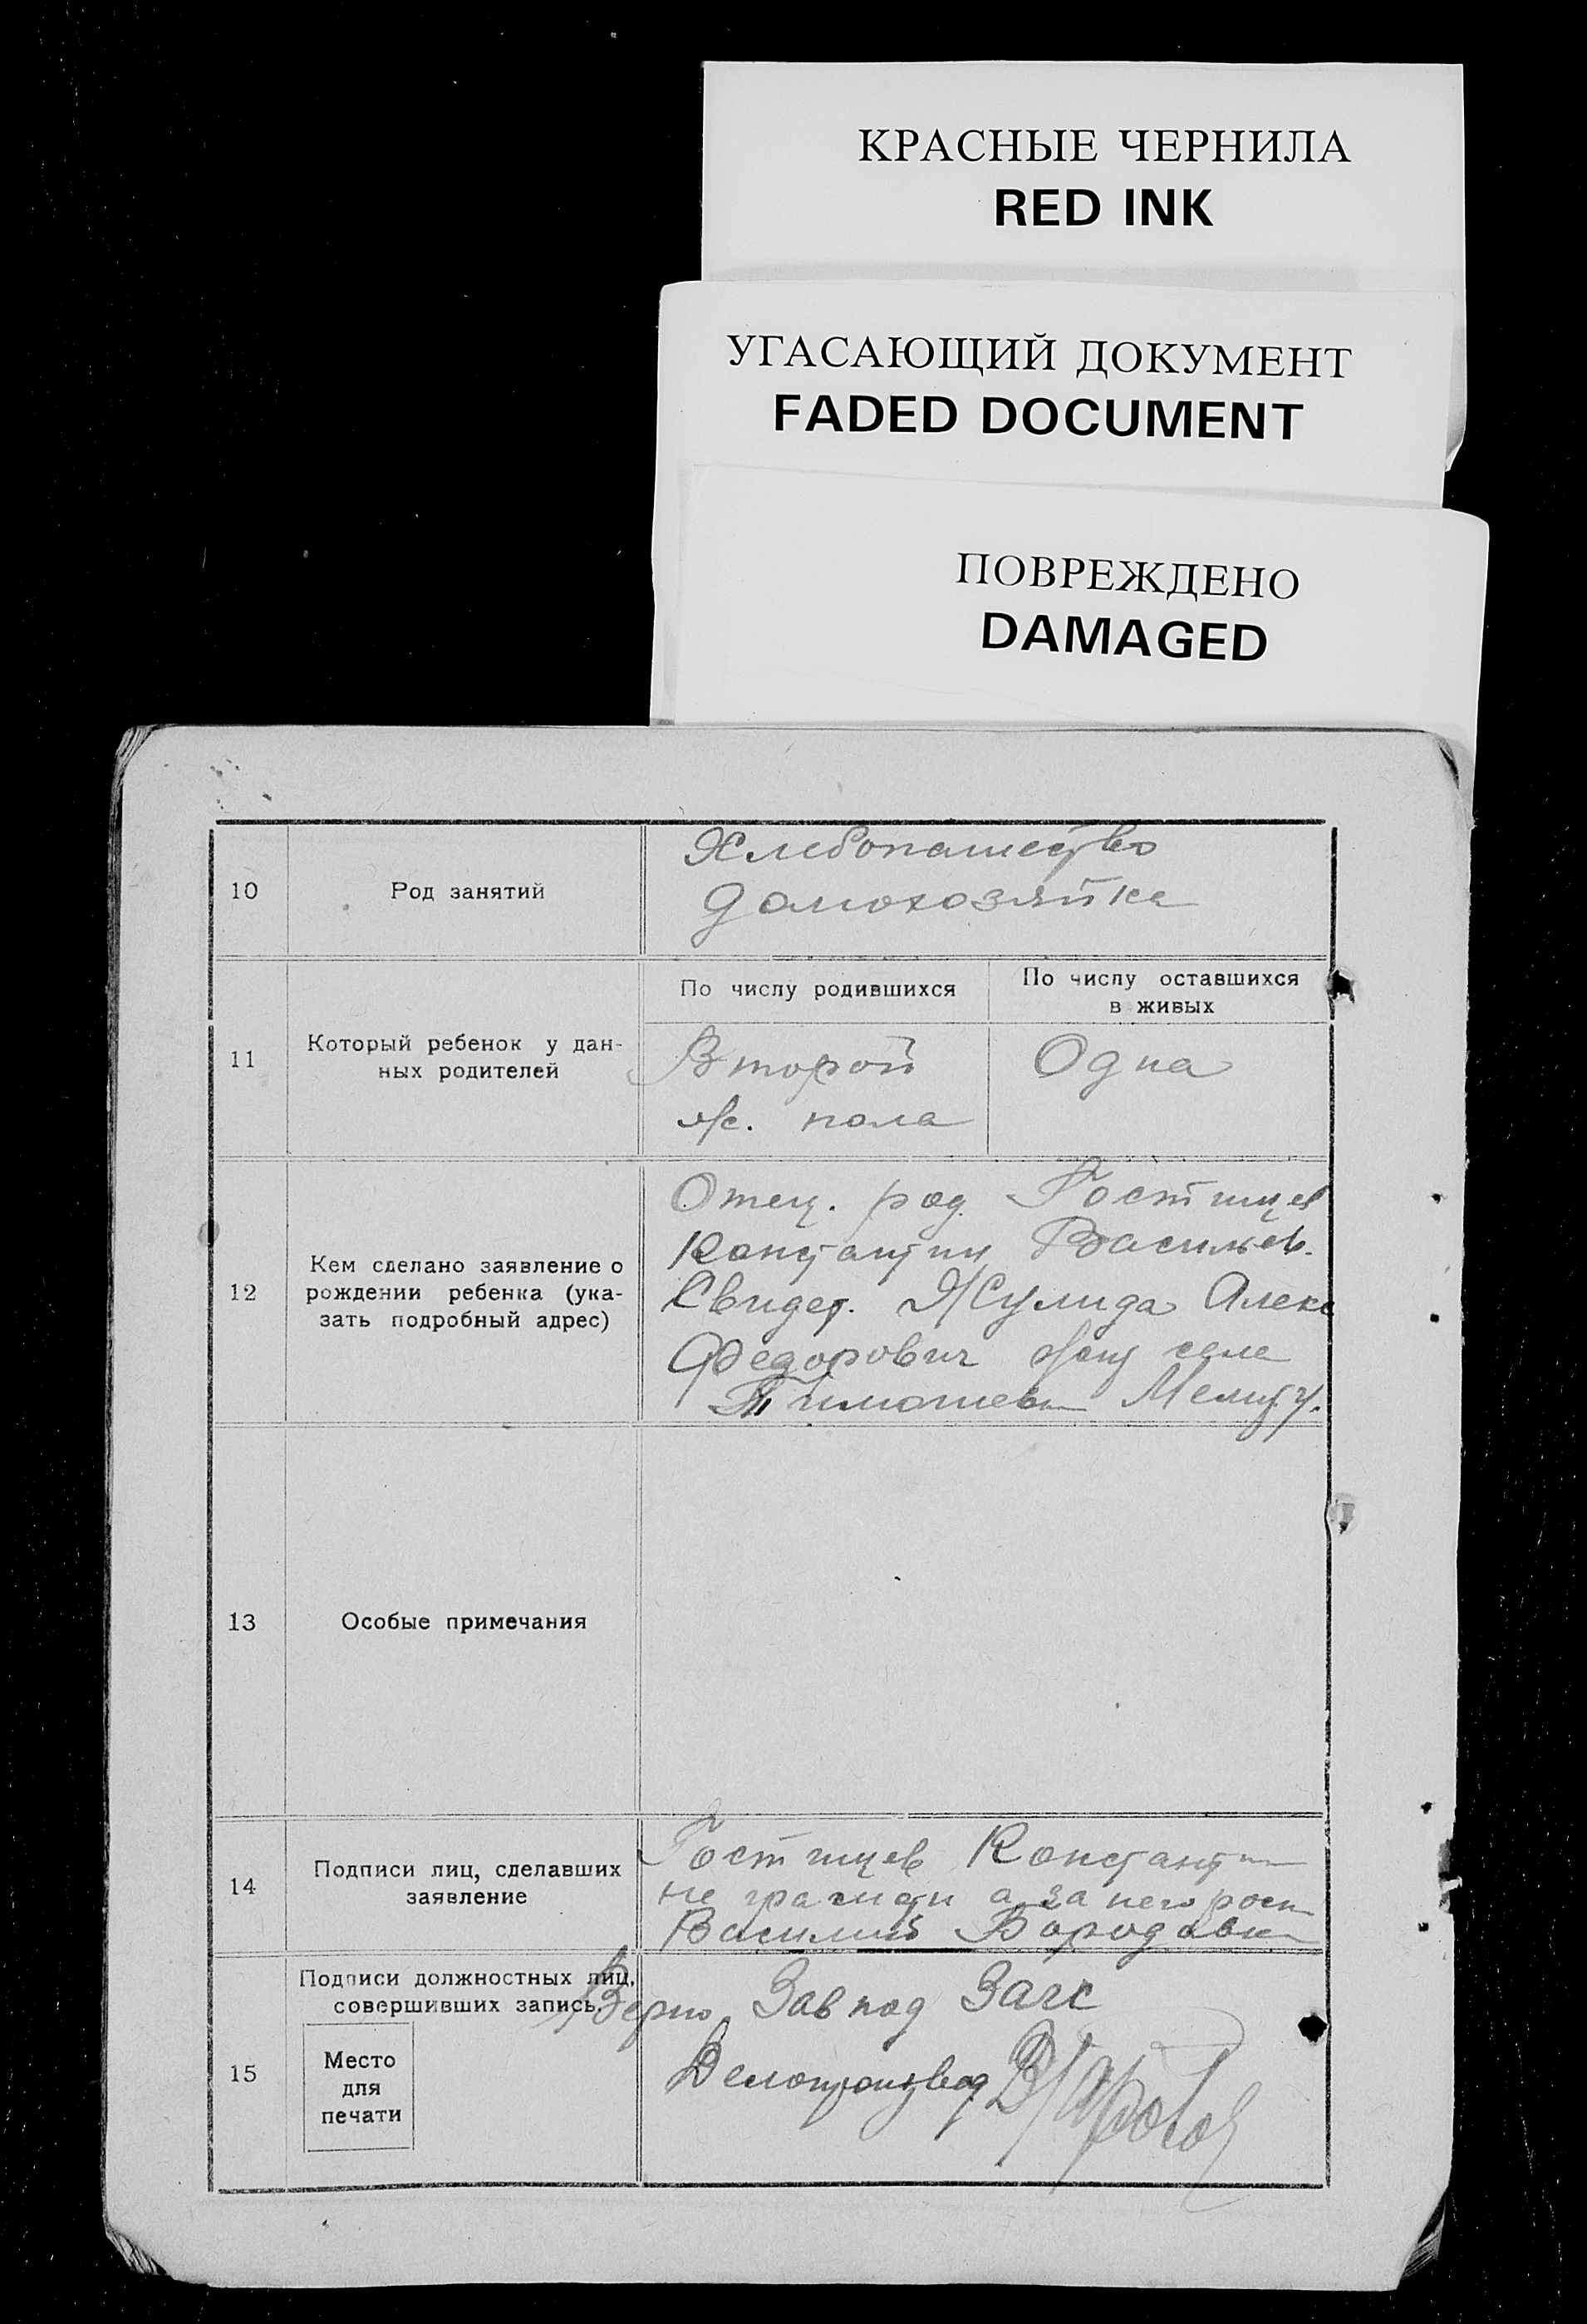 КРАСНЫЕ ЧЕРНИЛА
RED INK
УГАСАЮЩИЙ ДОКУМЕНТ
FADED DOCUMENT
ПОВРЕЖДЕНО
DAMAGED
10
Род занятий
Хлебопашество
домохозяйка
11
Который ребенок у дан-
ных родителей
По числу родившихся
Второй
ж. пола
По числу оставшихся
в живых
Одна
12
Кем сделано заявление о
рождении ребенка (ука-
зать подробный адрес)
Отец. род. Гостищев
Константин Васильев.
Свидет. Жулида Алекс
Федорович села
Тимошевки Мелит.
13
Особые примечания
14
Подписи лиц, сделавших
заявление
Гостищев Константин
не а за него росп
Василий Бородавки
15
Подписи должностных лиц,
совершивших запись.
Место
для
печати
Верно Зав под Загс
Делопроизвод